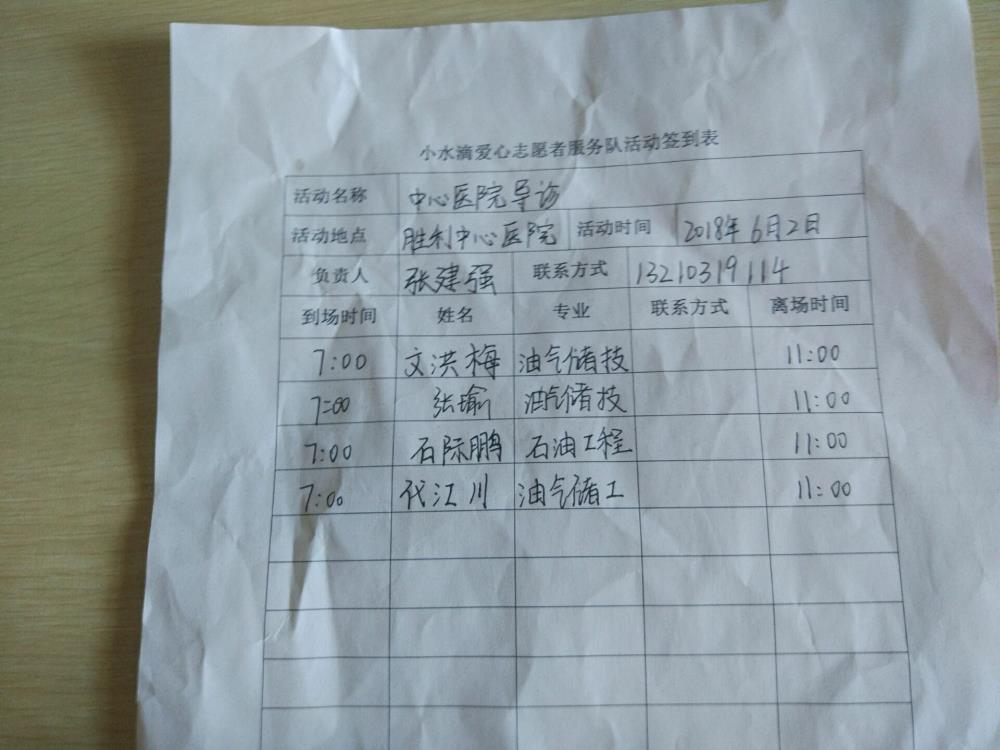 小水滴爱心志愿者服务队活动签到表
活动名称 中心医院导诊
活动地点 胜利中心医院 活动时间 2018年6月2日
负责人 张建强 联系方式 13210319114
到场时间 姓名 专业 联系方式 离场时间
7:00 文洪梅 油气储技 11:00
7:00 张瑜 油气储技 11:00
7:00 石际鹏 石油工程 11:00
7:00 代江川 油气储工 11:00